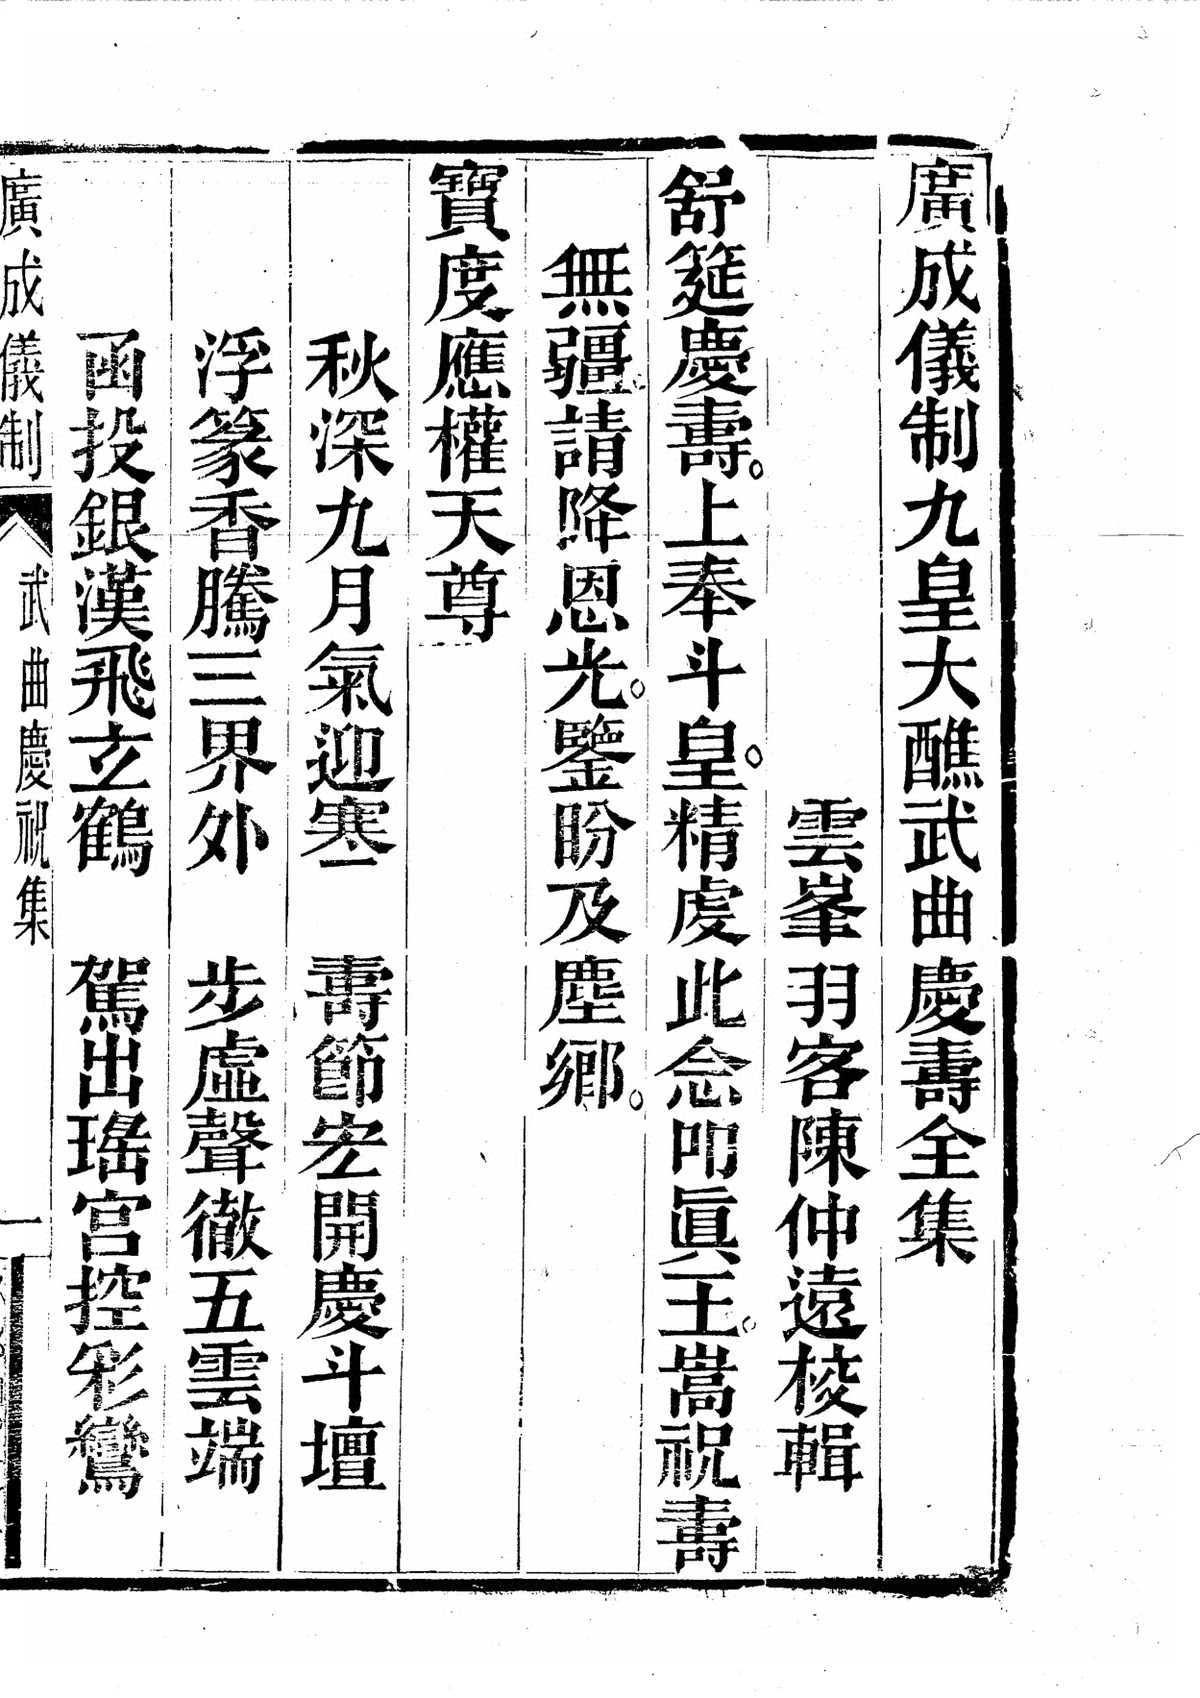 廣成儀制九皇大醮武曲慶壽全集
雲峯羽客陳仲遠校輯
舒筵慶壽。上奉斗皇。精虔此念叩眞王。嵩祝壽
無疆。請降恩光。鑒盼及塵鄉。
寶度應權天尊
秋深九月氣迎寒　壽節宏開慶斗壇
浮篆香騰三界外　步虛聲徹五雲端
函投銀漢飛玄鶴　駕出瑤宮控彩鸞
廣成儀制　武曲慶祝集　一